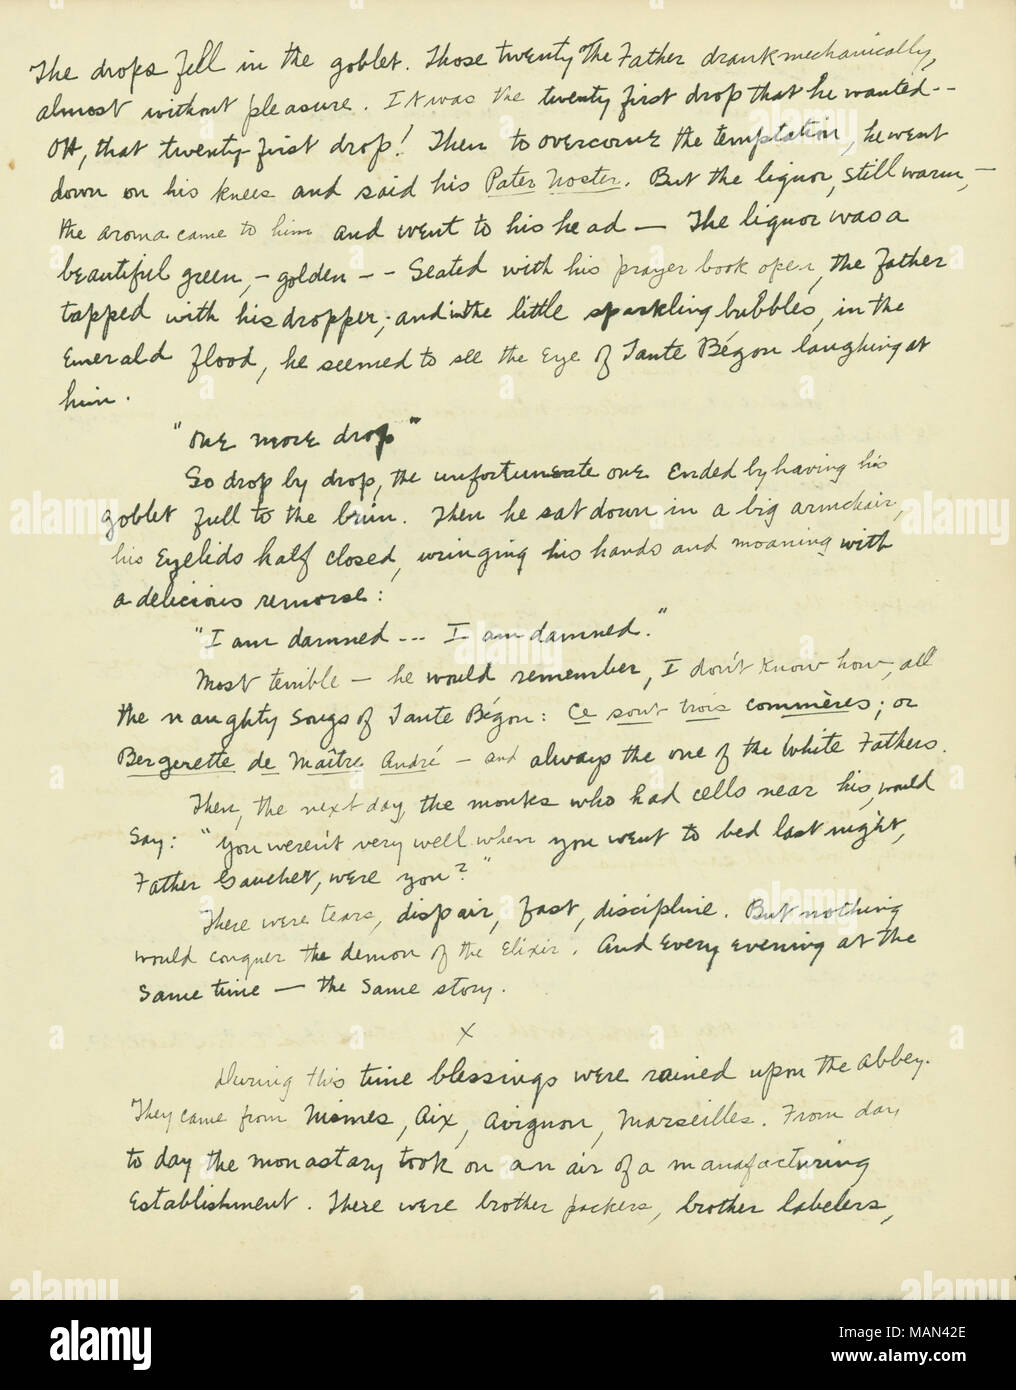 The drops fell in the goblet. Those twenty The Father drank mechanically,
almost without pleasure. It was the twenty first drop that he wanted--
OH, that twenty-first drop! Then to overcome the temptation, he went
down on his knees and said his Pater Noster. But the liquor, still warm,-
the aroma came to him and went to his head — The liquor was a
beautiful green,-golden-- Seated with his prayer book open, the Father
tapped with his dropper; and in the little sparkling bubbles, in the
Emerald flood, he seemed to see the Eye of Tante Bégon laughing at
him.
"one more drop"
So drop by drop, the unfortunate one Ended by having his
goblet full to the brim. Then he sat down in a big armchair,
his Eyelids half closed, wringing his hands and moaning with
a delicious remorse:
"I am damned --- I am damned."
Most terrible — he would remember, I don't know how, all
the naughty songs of Tante Bégon: Ce sont trois commères; or
Bergerette de Maître André — and always the one of the White Fathers.
Then, the next day, the monks who had cells near his, would
say: "You weren't very well when you went to bed last night,
Father Gaucher, were you?"
There were tears, dispair, fast, discipline. But nothing
would conquer the demon of the Elixir. And Every evening at the
same time — the same story.
x
During this time blessings were rained upon the abbey.
They came from Nismes, Aix, Avignon, Marseilles. From day
to day the monastary took on an air of a manafacturing
Establishment. There were brother packers, brother labelers,
alamy
Image ID: MAN42E
www.alamy.com